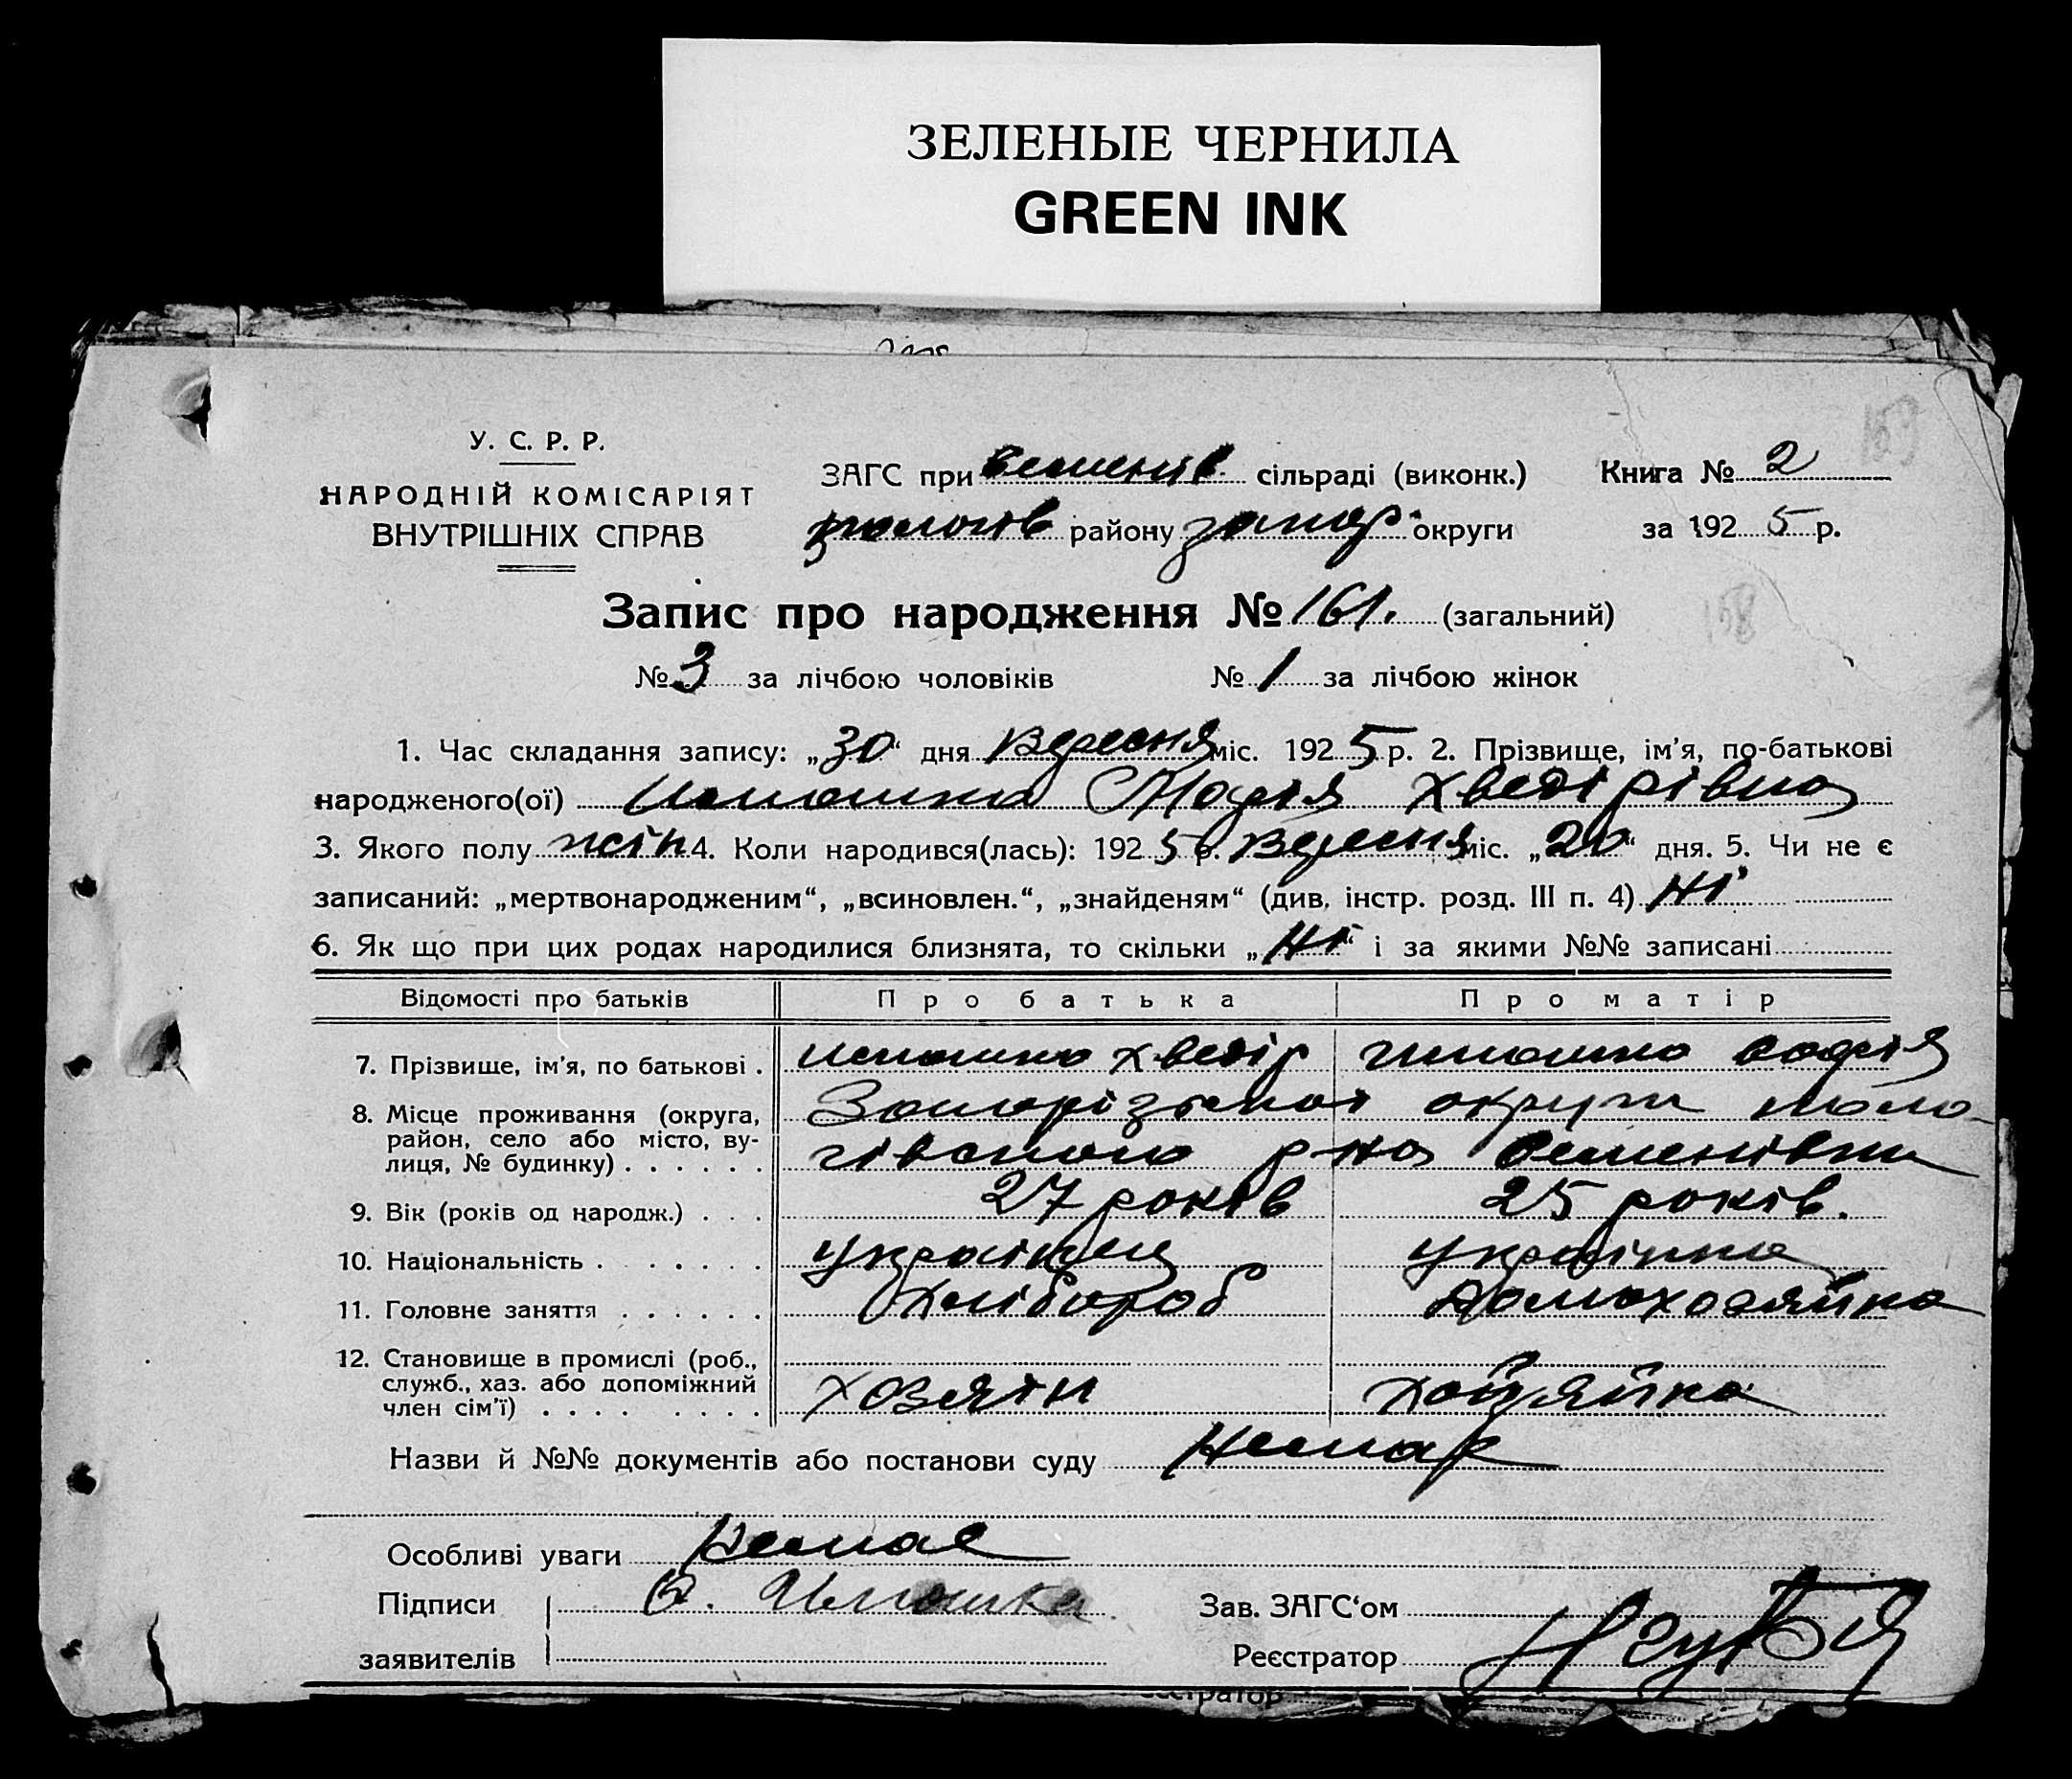 ЗЕЛЕНЫЕ ЧЕРНИЛА
GREEN INK
159
У. С. Р. Р.
НАРОДНІЙ КОМІСАРІЯТ
ВНУТРІШНІХ СПРАВ
ЗАГС при семенів. сільраді (виконк.) Книга № 2
району запор. округи за 1925 р.
158
Запис про народження № 161. (загальний)
№ 3 за лічбою чоловіків № 1 за лічбою жінок
1. Час складання запису: „30“ дня Вересня міс. 1925 р. 2. Прізвище, ім’я, по-батькові
народженого(ої) Марія Хведірівна
3. Якого полу жін 4. Коли народився(лась): 1925 р. Вересня міс. „20“ дня. 5. Чи не є
записаний: „мертвонародженим“, „всиновлен.“, „знайденям“ (див. інстр. розд. III п. 4) Ні
6. Як що при цих родах народилися близнята, то скільки „Ні“ і за якими №№ записані
Відомості про батьків Про батька Про матір
7. Прізвище, ім’я, по батькові . Хведір софія
8. Місце проживання (округа, Запорізької округи моло
район, село або місто, ву-
лиця, № будинку) . . . . . . чівського р-на Семенівки
9. Вік (років од народж.) . . . 27 років 25 років.
10. Національність . . . . . . українец українка
11. Головне заняття . . . . . . Хлібороб Домохозяйка
12. Становище в промислі (роб.,
служб., хаз. або допоміжний
член сім’ї) . . . . . . . . хозяін хозяйка
Назви й №№ документів або постанови суду Немає
Особливі уваги Немає
Підписи Зав. ЗАГС‘ом
заявителів Реєстратор